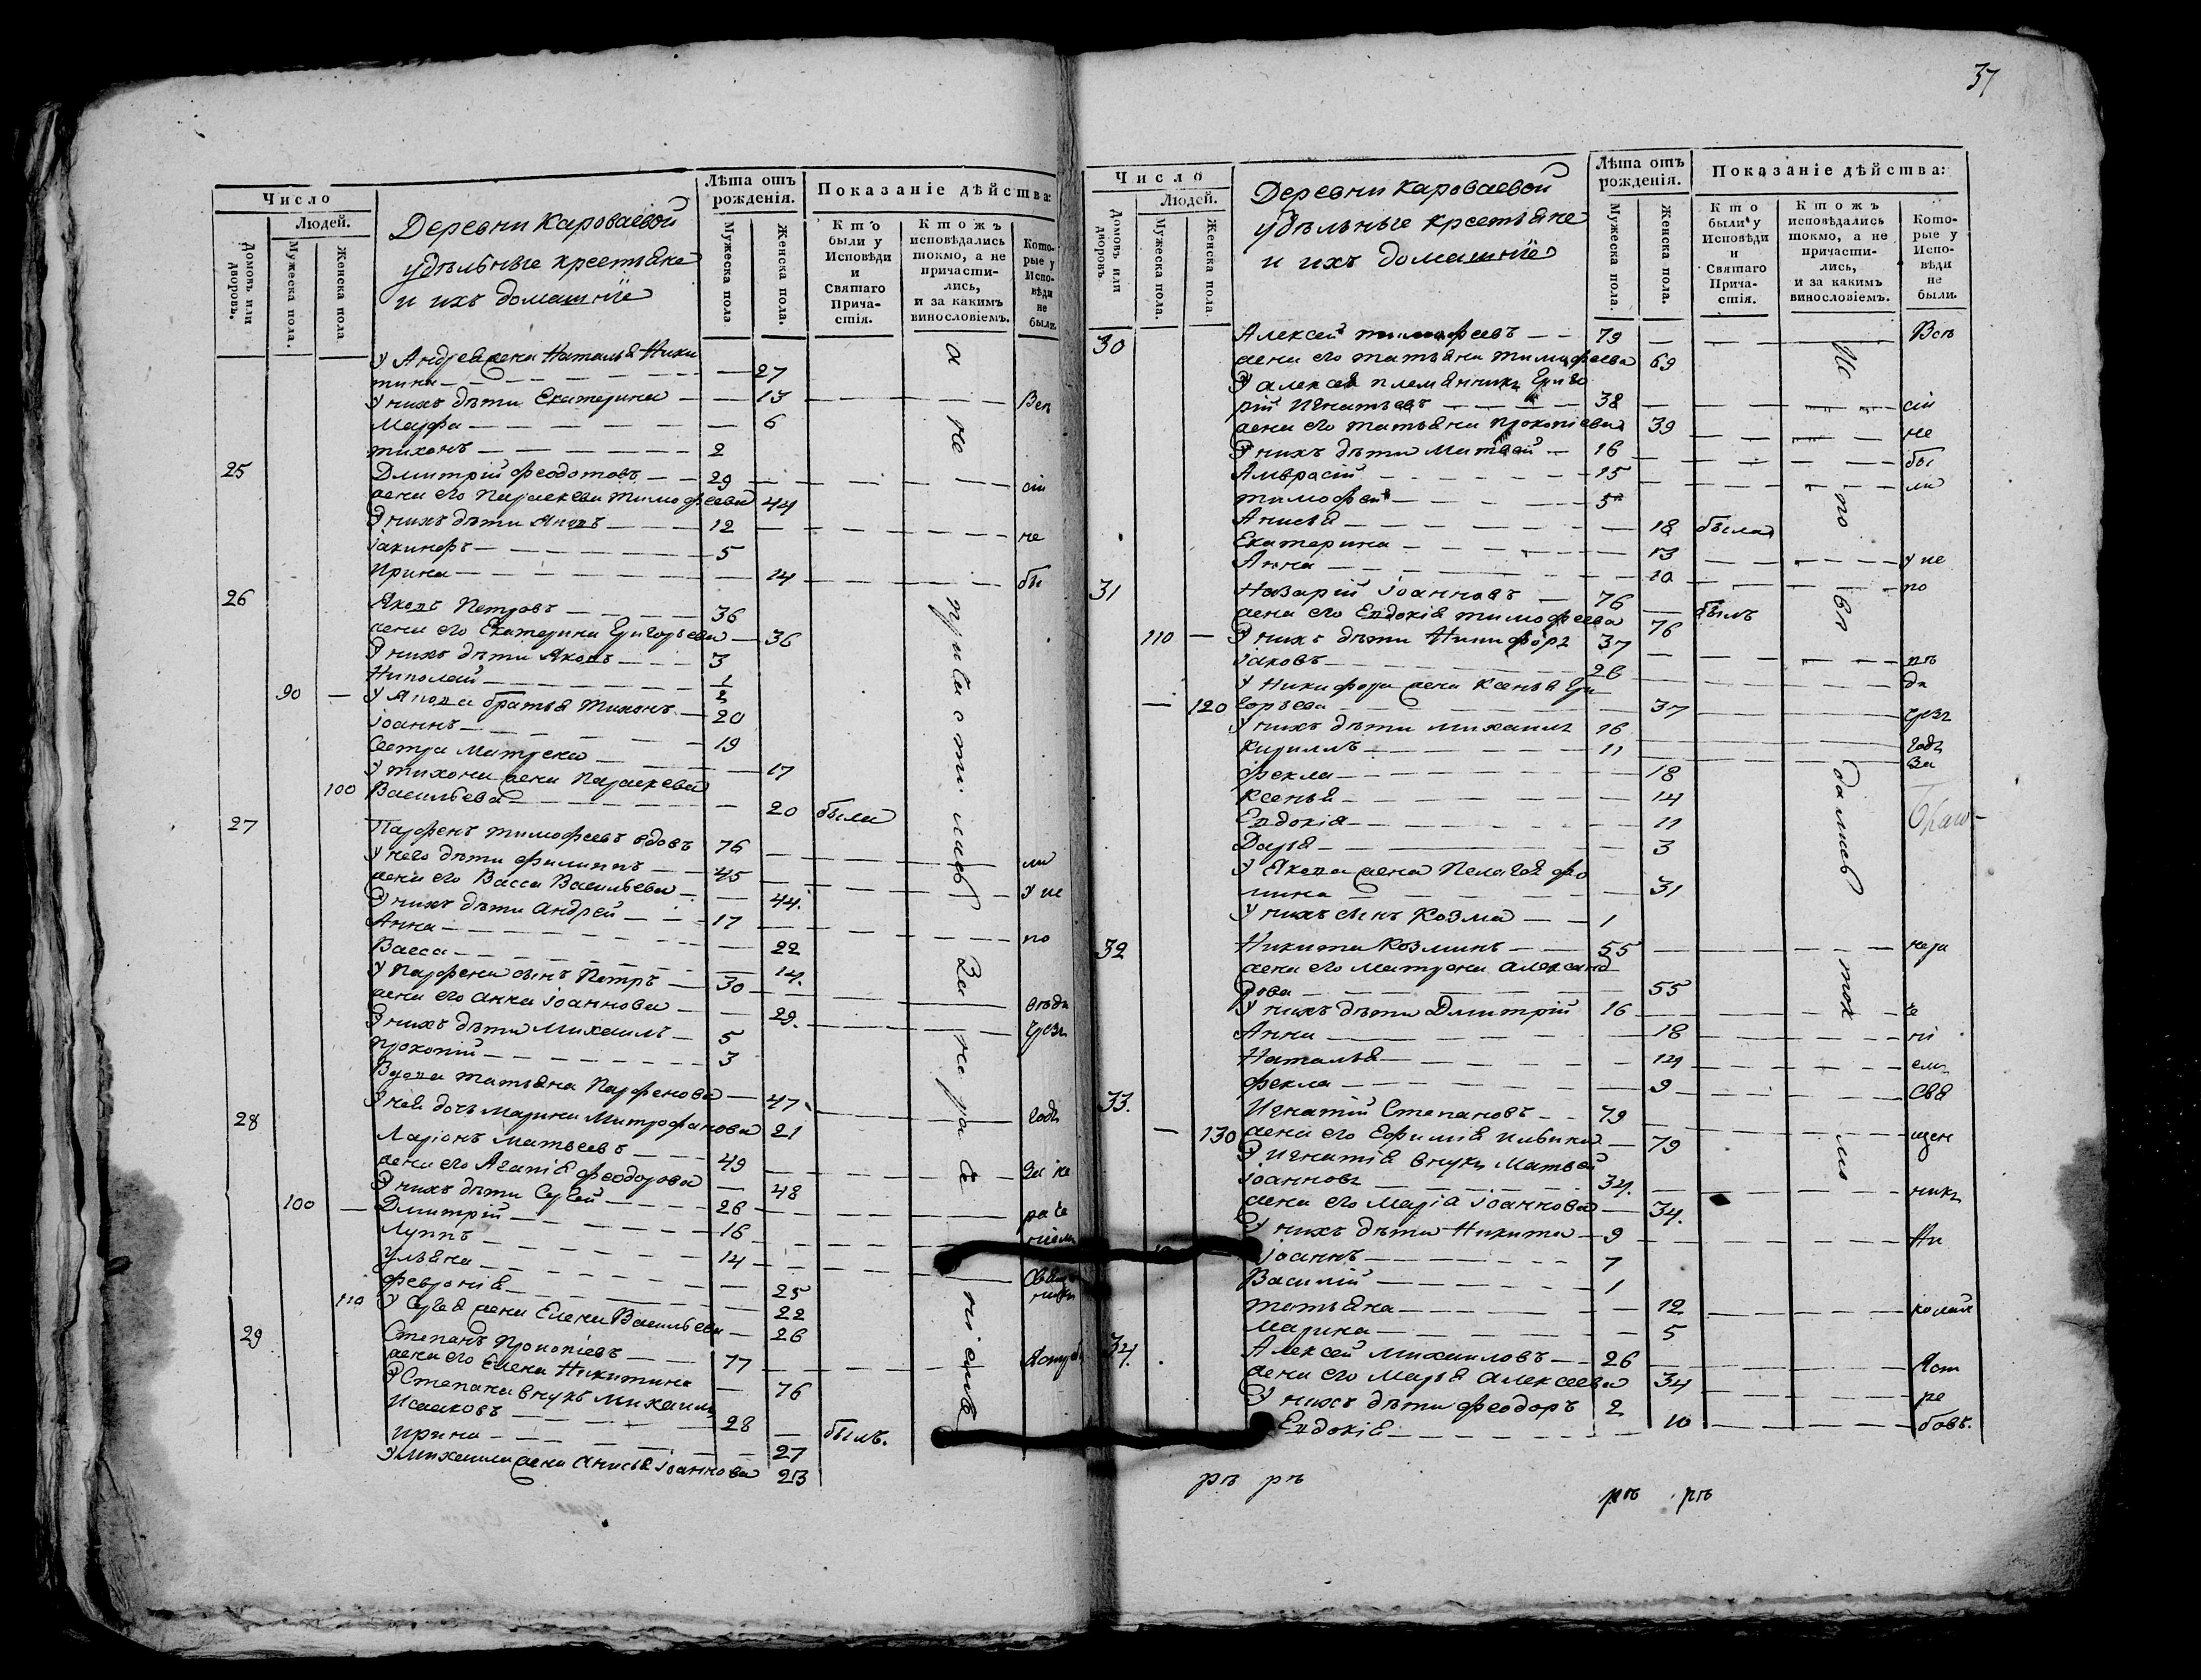 37
Число
Людей.
Домовъ или дворовъ.
Мужеска пола.
Женска пола
Деревни Кароваевой
удѣльные крестьяне
и ихъ домашніе
Лѣта отъ рожденія.
Мужеска пола
Женска пола.
Показаніе дѣйства:
Кто были у Исповѣди и Святаго Причастія.
Ктожъ исповѣдались токмо, а не причастились, и за какимъ винословіемъ.
Которые у Исповѣди не были.
У Андрея жена Наталья Ники
тина — 27
У нихъ дѣти Екатерина — 13
Марфа — 6
тихонъ — 2
25 Дмитрій Феодотовъ — 29
жена его Параскева тимофеева 44
У нихъ дѣти Яковъ — 12 не
іакинфъ — 5
Ирина — 14 бы
26 Яковъ Петровъ — 36
жена его Екатерина Григорьева — 36
У нихъ дѣти Яковъ — 3
Николай — 1
90 — У Якова братья Тихонъ — 20
іоаннъ — 19
сестра Матрена — 17
У тихона жена Параскева
100 Васильева — 20 были
27 Парфенъ тимофеевъ вдовъ 76 ли
У него дѣти филиппъ — 45
жена его Васса Васильева — 44. У ис
У нихъ дѣти Андрей — 17
Анна — 22 по
Васса — 14.
У Парфена сынъ Петръ — 30
жена его анна іоаннова — 29. вѣди
У нихъ дѣти Михаилъ — 5 чрезъ
прокопій — 3
Вдова татьяна Парфенова — 47
У ней дочь марина Митрофанова 21 годъ
28 Ларіонъ Матвеевъ — 49
жена его Агапія феодорова — 48 За не
У нихъ дѣти Сергей — 26
100 — Дмитрій — 16 раче
Луппъ — 14 ніемъ
Ульяна — 25
феврониія — 22
110 У Сергея жена Елена Васильева — 26
29 Степанъ Прокопіевъ — 77
жена его Елена Никитина — 76
У Степана внукъ Михаилъ
Исааковъ — 28 былъ.
Ирина — 27
У Михаила жена Анисья іоаннова 23
а не причастились За нераченіемъ
Число
Людей.
Домовъ или дворовъ.
Мужеска пола.
Женска пола
Деревни Кароваевой
удѣльные крестьяне
и ихъ домашніе
Лѣта отъ рожденія.
Мужеска пола.
Женска пола.
Показаніе дѣйства:
Кто были у Исповѣди и Святаго Причастія.
Ктожъ исповѣдались токмо, а не причастились, и за какимъ винословіемъ.
Которые у Исповѣди не были.
30 Алексей тимофеевъ — 79 Всѣ
жена его татьяна тимофеева 69
У алексея племянникъ Григо
рій Игнатьевъ — 38 сіи
жена его татьяна прокопіева 39 не
У нихъ дѣти Матвей — 16 бы
Амвросій — 15 ли
тимофей — 5
Анисья — 18 была
Екатерина — 13 у ис
Анна — 10 по
31 Назарій іоанновъ — 76 былъ
жена его Евдокія тимофеева 76
110 — У нихъ дѣти Никифоръ 37 вѣ
іаковъ — 26 ди
У Никифора жена Ксенья Гри
— 120 горьева — 37 чрезъ
У нихъ дѣти михаилъ 16 годъ
кирилъ — 11 за
фекла — 18
Ксенья — 14
Евдокія — 11
Дарья — 3
У Якова жена Пелагея фо
мина — 31
У нихъ сынъ Козма — 1
32 Никита Козминъ — 55 нера
жена его Матрена александ
рова — 55
У нихъ дѣти Дмитрій 16 че
Анна — 18 ні
Наталья — 14 емъ
фекла — 9 свя
33. Игнатій Степановъ — 79
— 130 жена его Ефимія ильина — 79 щен
У Игнатія внукъ Матвей
іоанновъ — 34. никъ
жена его Марія іоаннова — 34.
У нихъ дѣти Никита — 9 Ни
іоаннъ — 7
Василій — 1
татьяна — 12 колай
Марина — 5
34. Алексей михаиловъ — 26 Яст
жена его Марья алексеева 34 ре
У нихъ дѣти феодоръ 2 бовъ.
Евдокія — 10
Исповедались токмо